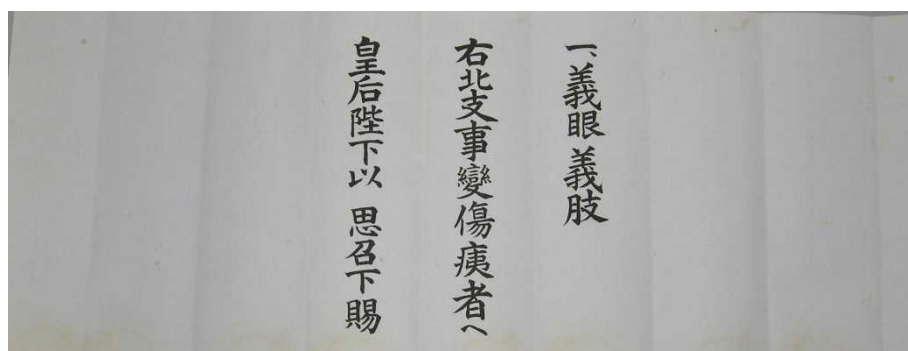 一、義眼義肢
右北支事變傷痍者へ
皇后陛下以 思召下賜